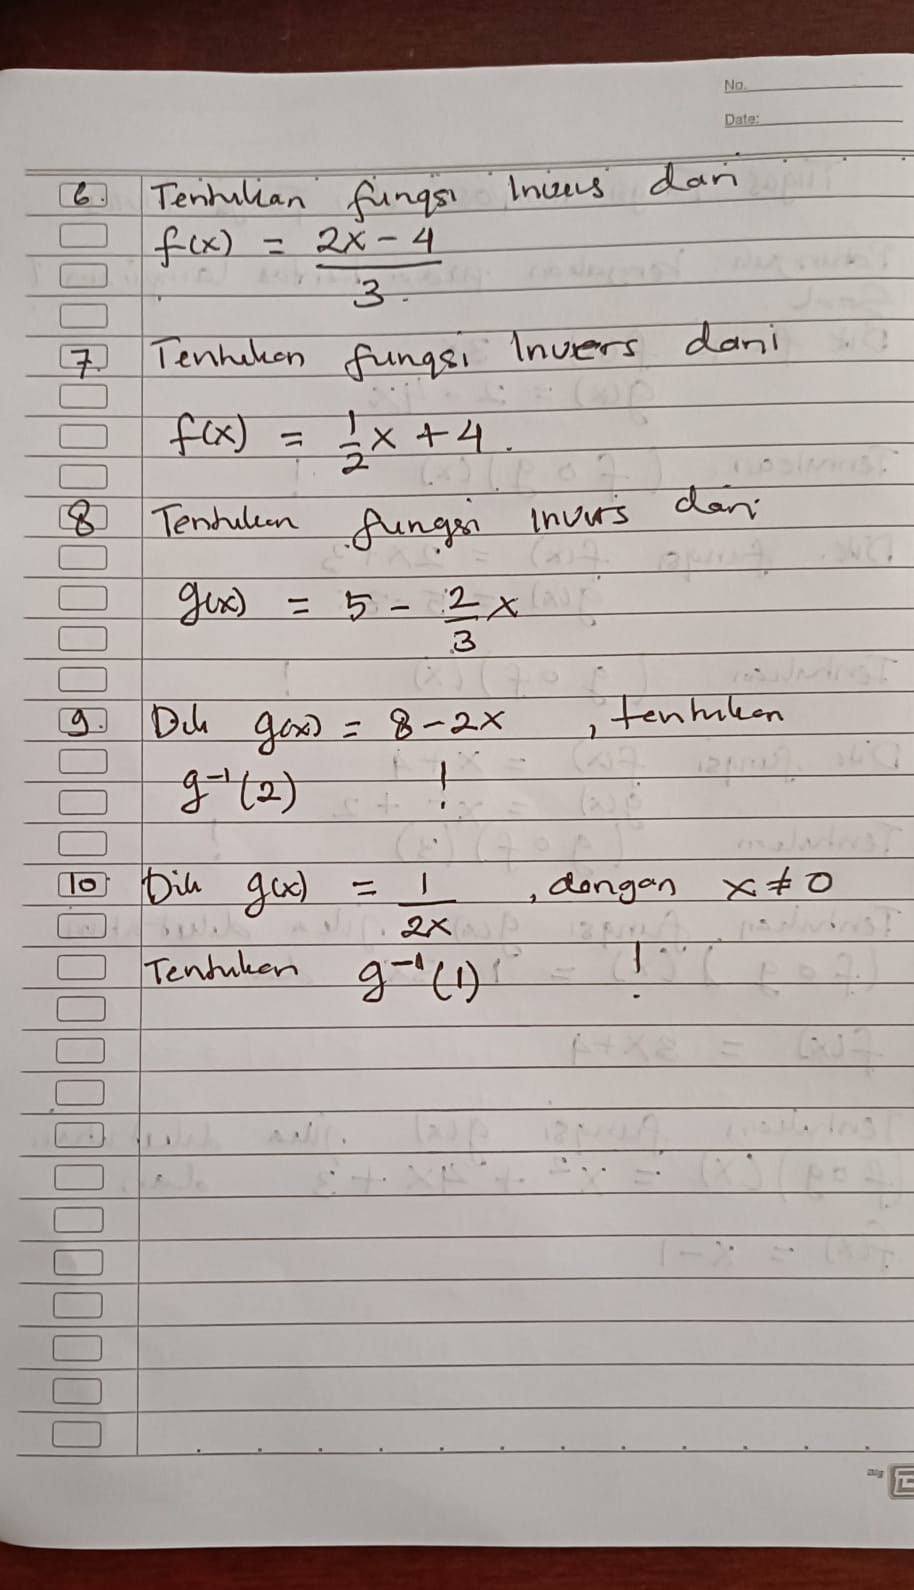 No.
Date:
6. Tentukan fungsi Invers dari
f(x) = 2x - 4
3.
7. Tentukan fungsi Invers dari
f(x) = 1/2 x + 4.
8 Tentukan fungsi invers dari
g(x) = 5 - 2/3 x
9. Dik g(x) = 8 - 2x , tentukan
g⁻¹(2) !
10. Dik g(x) = 1 , dengan x ≠ 0
2x
Tentukan g⁻¹(1) !